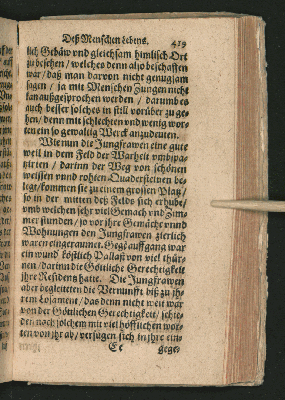 Deß Menschen Lebens. 419
lich Gebäw vnd gleichsam himlisch Ort
zu besehen / welches denn also beschaffen
war / daß man darvon nicht genugsam
sagen / ja mit Menschen Zungen nicht
kan außgesprochen werden / darumb es
auch besser solches in still vorüber zu ge-
hen / denn mit schlechten vnd wenig wor-
ten ein so gewaltig Werck anzudeuten.
Wie nun die Jungfrawen eine gute
weil in dem Feld der Warheit vmbspa-
tzierten / darinn der Weg von schönen
weissen vnd rohten Quadersteinen be-
legt / kommen sie zu einem grossen Platz /
so in der mitten deß Felds sich erhube /
vmb welchen sehr viel Gemach vnd Zim-
mer stunden / so vor ihre Gemächt vnnd
Wohnungen den Jungfrawen zierlich
waren eingeraumet. Gegē auffgang war
ein vnnd köstlich Pallast von viel thür-
nen / darinn die Göttliche Gerechtigkeit
ihre Residentz hatte. Die Jungfrawen
aber begleiteten die Vernunfft biß zu jh-
rem Losament / das denn nicht weit war
von der Göttlichen Gerechtigkeit / schie-
den nach solchem mit viel höfflichen wor-
ten von jhr ab / versügen sich in jhre ein-
Ee gege-